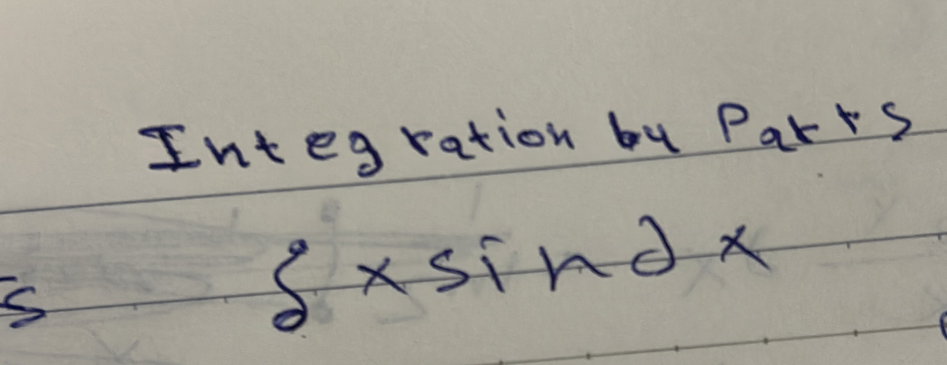 Integration by Parts
∫ x sin dx